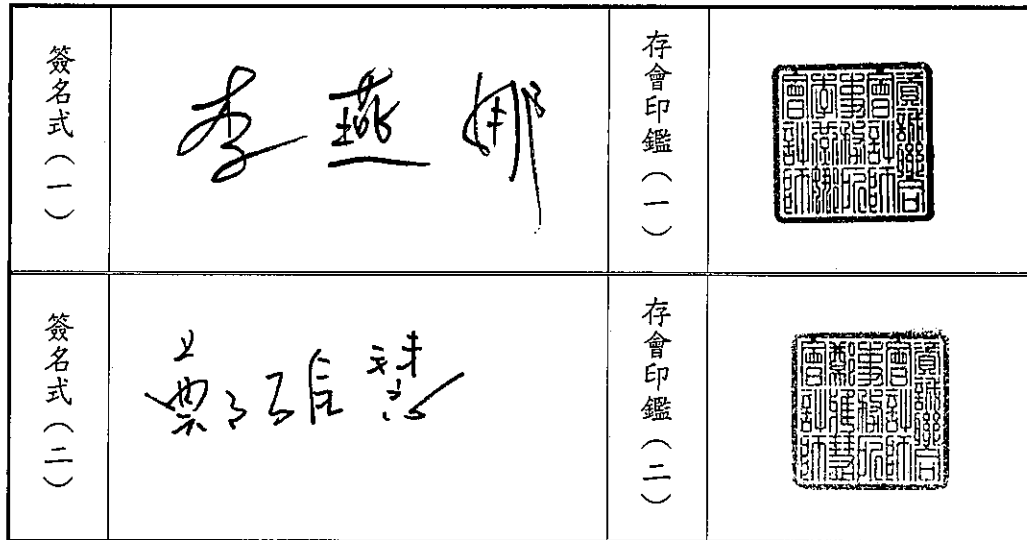 簽名式（一）
李燕娜
存會印鑑（一）
資誠聯合
會計師
事務所
李燕娜
會計師
簽名式（二）
鄭雅慧
存會印鑑（二）
資誠聯合
會計師
事務所
鄭雅慧
會計師